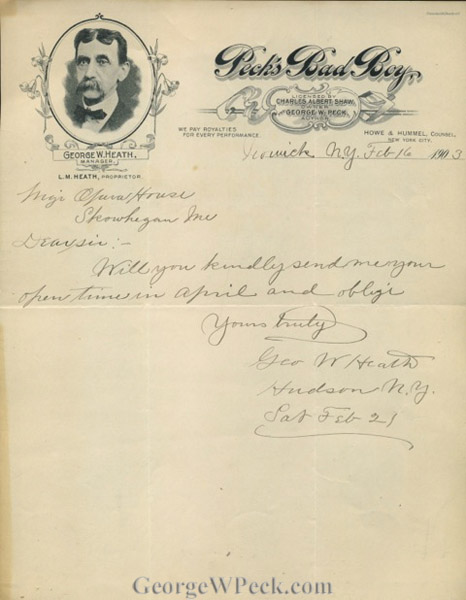 Peck's Bad Boy
LICENSED BY
CHARLES ALBERT SHAW,
OWNER.
GEORGE W. PECK,
AUTHOR.
WE PAY ROYALTIES
FOR EVERY PERFORMANCE.
HOWE & HUMMEL, COUNSEL,
NEW YORK CITY.
GEORGE W. HEATH,
MANAGER.
L. M. HEATH, PROPRIETOR.
N.Y. Feb 16 1903
Mgr Opera House
Skowhegan Me
Dear sir :-
Will you kindly send me your
open time in April and oblige
Yours truly
Geo W Heath
Hudson N.Y.
Sat Feb 21
GeorgeWPeck.com